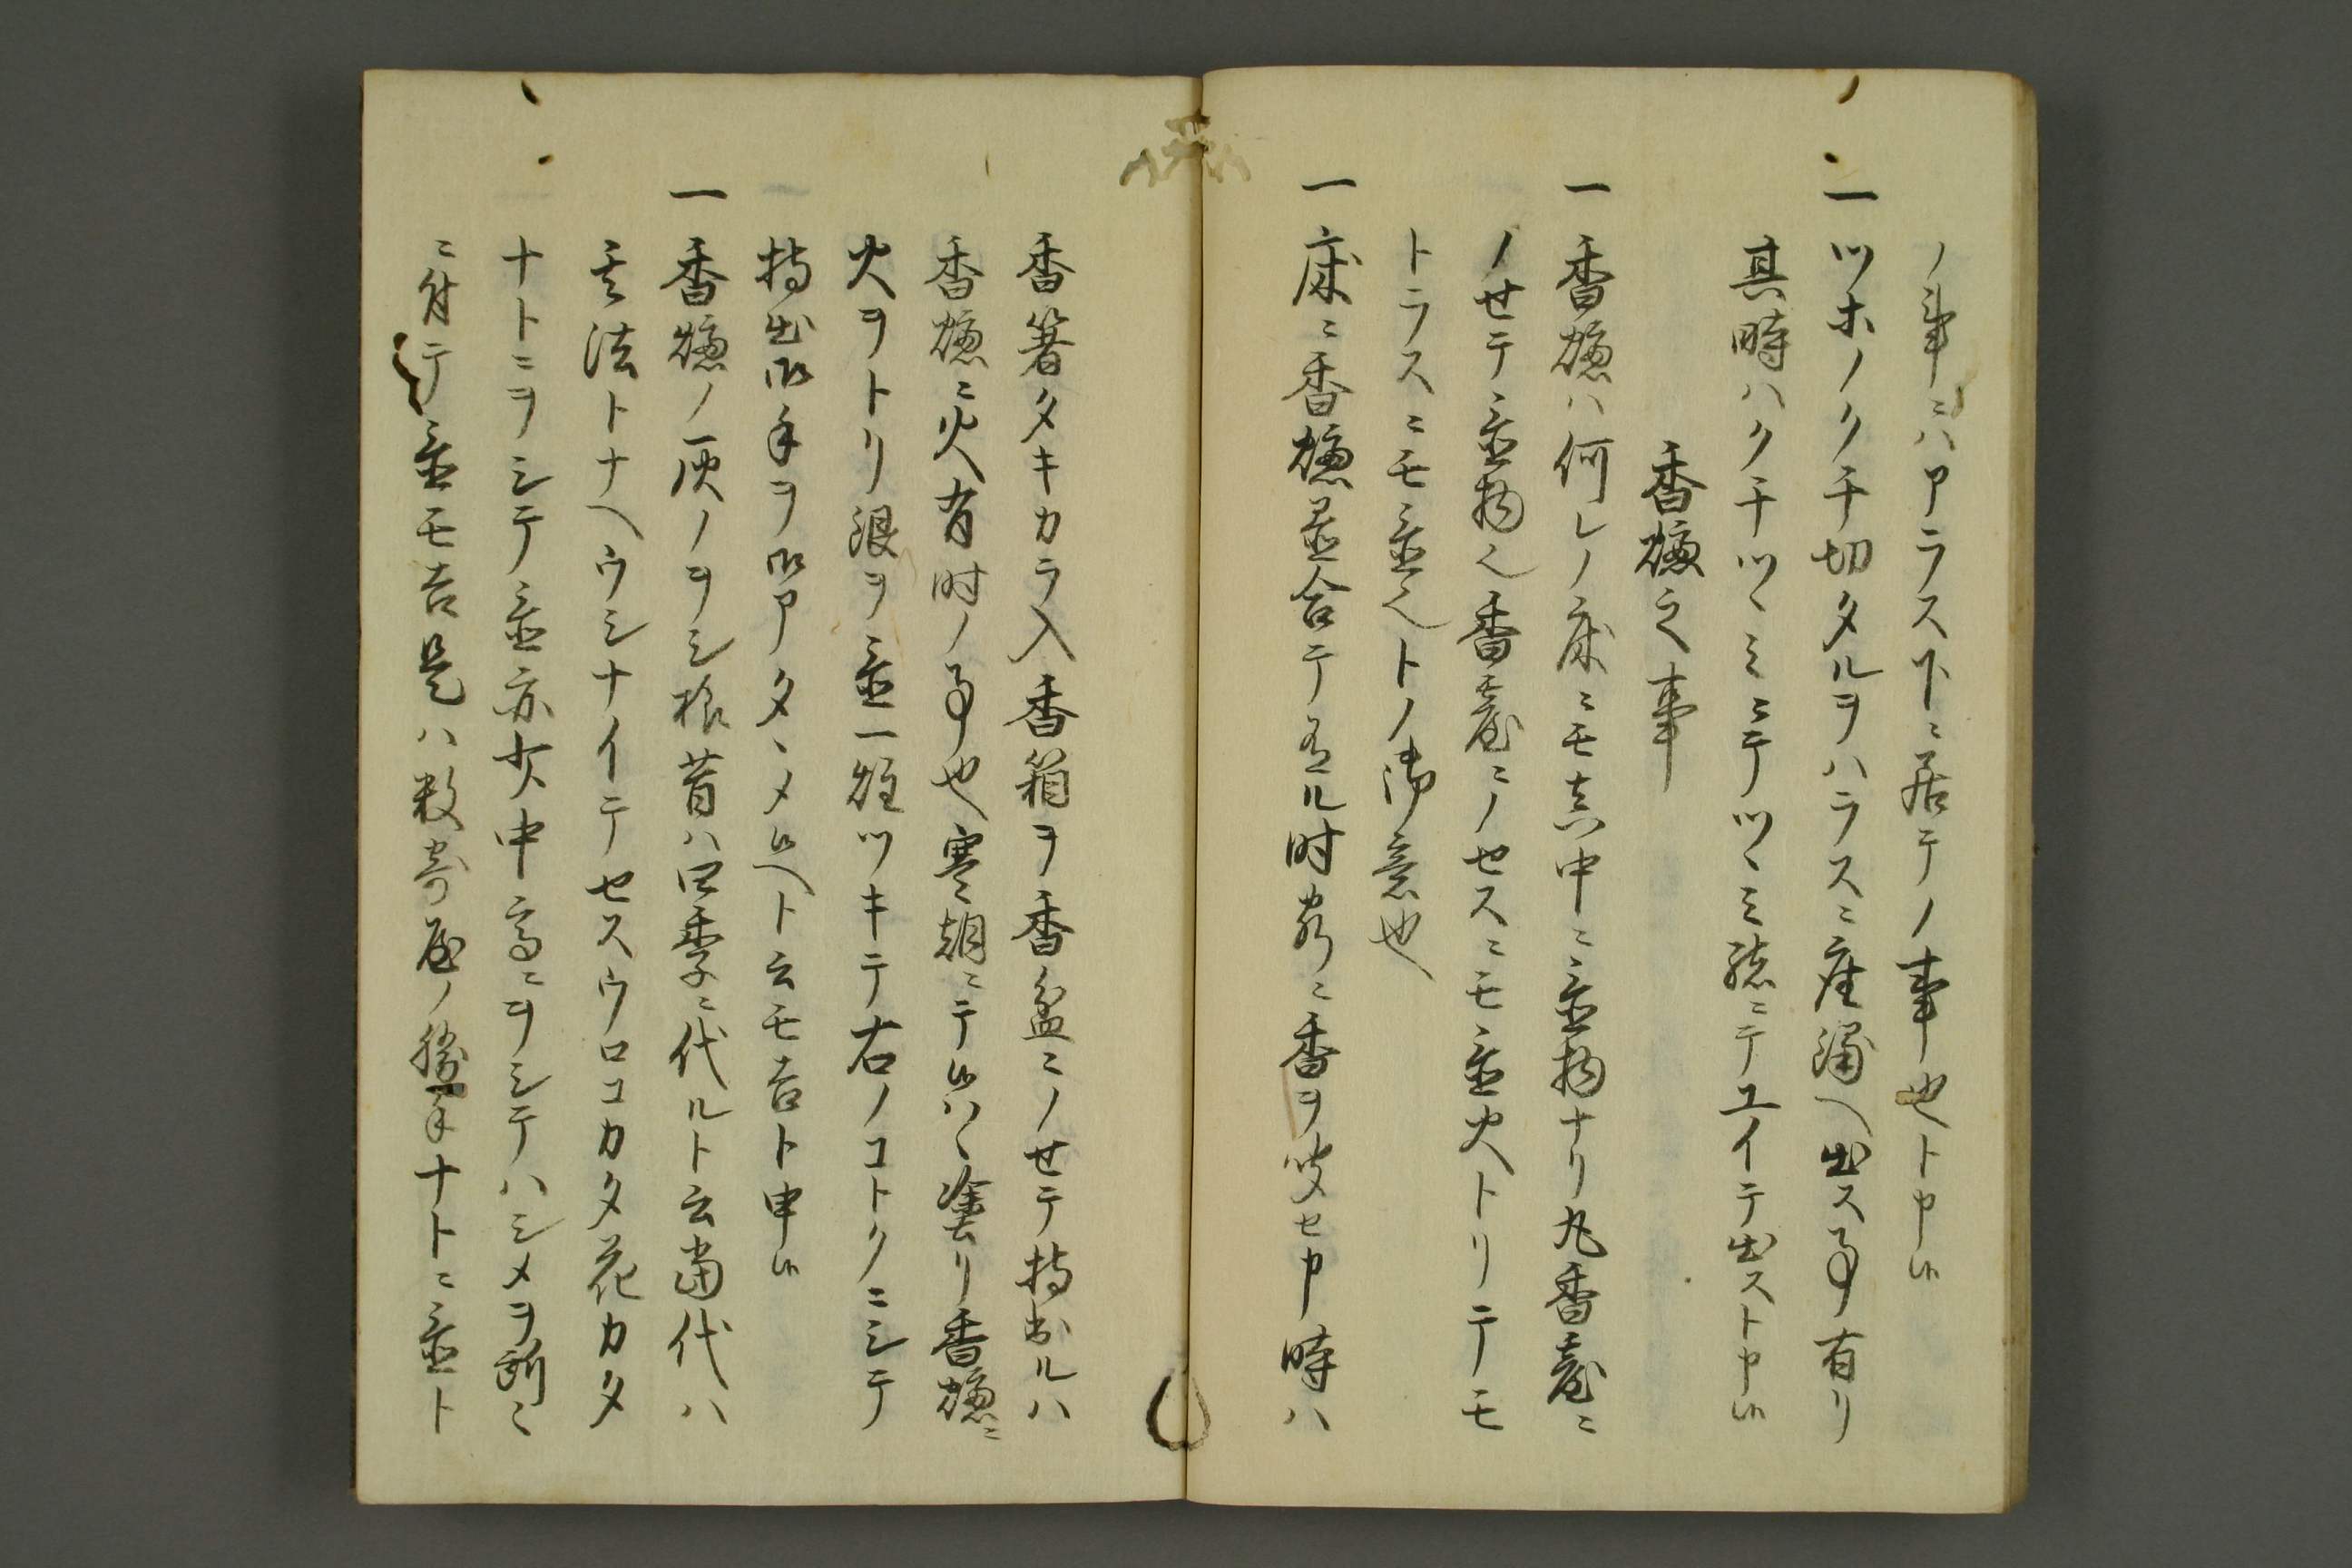 ノ事ニハアラス下ニ居テノ事也ト申候
一ツホノクチ切タルヲハラスニ座鋪ヘ出ス事有リ
其時ハクチツヽミニテツヽミ緒ニテユイテ出スト申候
香爐之事
一香爐ハ何レノ床ニモ真中ニ置物ナリ丸香臺ニ
ノせテ置物也香臺ニノセスニモ置火トリテモ
トラスニモ置也トノ御意也
一床ニ香爐置合テ有ル時客ニ香ヲ焼セ申時ハ
香箸タキカラ入香箱ヲ香盆ニノせテ持出ルハ
香爐ニ火有時ノ事也寒朝ニテ候ハヽ塗リ香爐ニ
火ヲトリ銀ヲ置一炷ツキテ右ノコトクニシテ
持出御手ヲ御アタヽメ候ヘト云モ吉ト申候
一香爐ノ灰ノヲシ様昔ハ四季ニ代ルト云當代ハ
其法トナヘウシナイテセスウロコカタ花カタ
ナトニヲシテ置亦火中高ニヲシテハシメヲ所ニ
ニ付テ置モ吉是ハ数寄屋ノ勝手ナトニ置ト